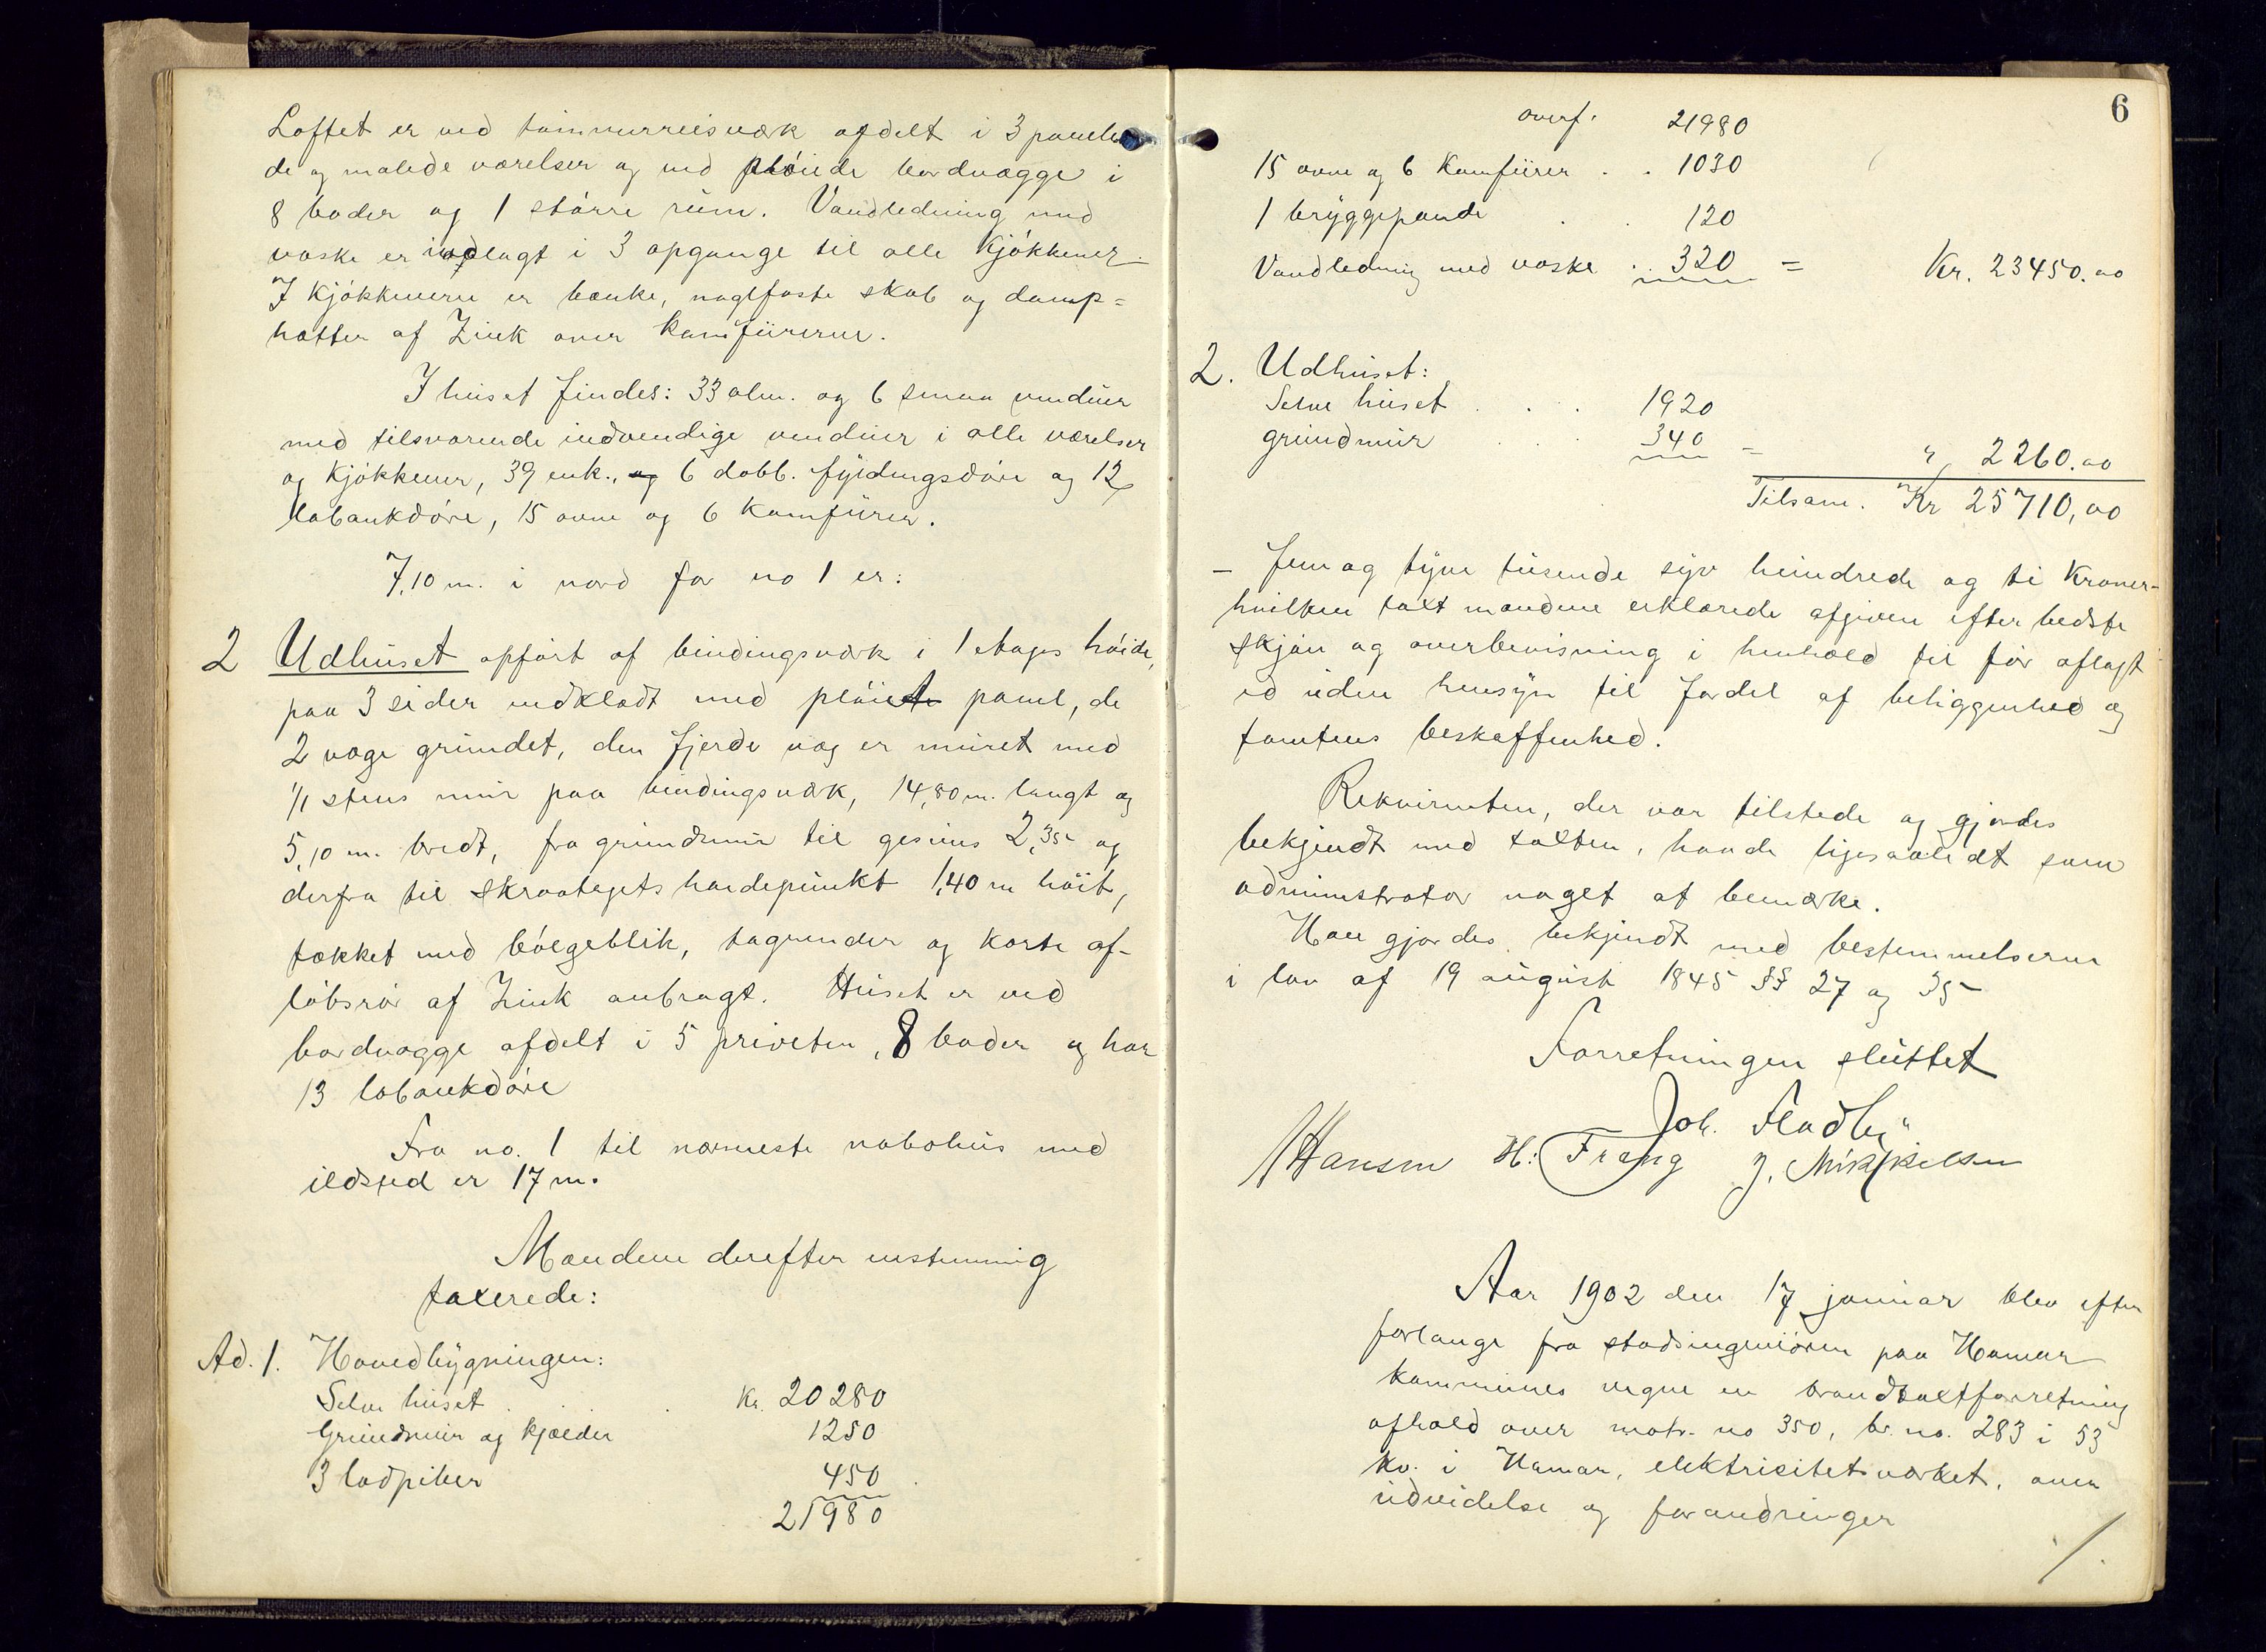 Loftet er ved tømmerreisværk afdelt i 3 panele-
de og malede værelser og ved pløiede bordvægge i
8 boder og 1 større rum. Vandledning med
vaske er indlagt i 3 opgange til alle kjøkkener.
I kjøkkenerne er bænke, naglfaste skab og damp=
hætter af Zink over komfurerne.
I huset findes: 33 alm. og 6 smaa vinduer
med tilsvarende indvendige vinduer i alle værelser
og kjøkkener, 39 enk., og 6 dobb. fyldingsdøre og 12
labankdøre, 15 ovne og 6 komfurer.
7,10 m. i nord for no 1 er:
2 Udhuset opført af bindingsværk i 1 etages høide,
paa 3 sider udklædt med pløiet panel, de
2 vægge grundet, den fjerde væg er muret med
1/1 stens mur paa bindingsværk, 14,80 m. langt og
5,10 m. bredt, fra grundmur til gesims 2,35 og
derfra til skraatagets høidepunkt 1,40 m høit,
tækket med bølgeblik, tagrender og korte af-
løbsrør af Zink anbragt. Huset er ved
bordvægge afdelt i 5 priveter, 8 boder og har
13 labankdøre
Fra no. 1 til nærmeste nabohus med
ildsted er 17 m.
Mændene derefter enstemmig
taxerede:
Ad. 1. Hovedbygningen:
Selve huset . . kr. 20280
Grundmur og kjælder 1250
3 ladpiber 450
21980
6
overf. 21980
15 ovne og 6 komfurer . . 1030
1 bryggepande . . 120
Vandledning med vaske . . 320 = Kr. 23450.00
2. Udhuset:
Selve huset . . . 1920
grundmur . . . 340 = " 2260.00
Tilsam. Kr 25710,00
- fem og tyve tusende syv hundrede og ti kroner-
hvilken taxt mændene erklærede afgiven efter bedste
skjøn og overbevisning i henhold til før aflagt
ed uden hensyn til fordel af beliggenhed og
tomtens beskaffenhed.
Rekvirenten, der var tilstede og gjordes
bekjendt med taxten, havde ligesaalidt som
administrator noget at bemærke.
Han gjordes bekjendt med bestemmelserne
i lov af 19 august 1845 §§ 27 og 35
Forretningen sluttet
Joh. Fladby
Hansen H: Frang J. Mikkelsen
Aar 1902 den 17 januar blev efter
forlange fra stadsingeniøren paa Hamar
kommunes vegne en brandtaxtforretning
afhold over matr. no 350, br. no. 283 i 53
kv. i Hamar, elektrisitetsværket, over
udvidelse og forandringer
./.